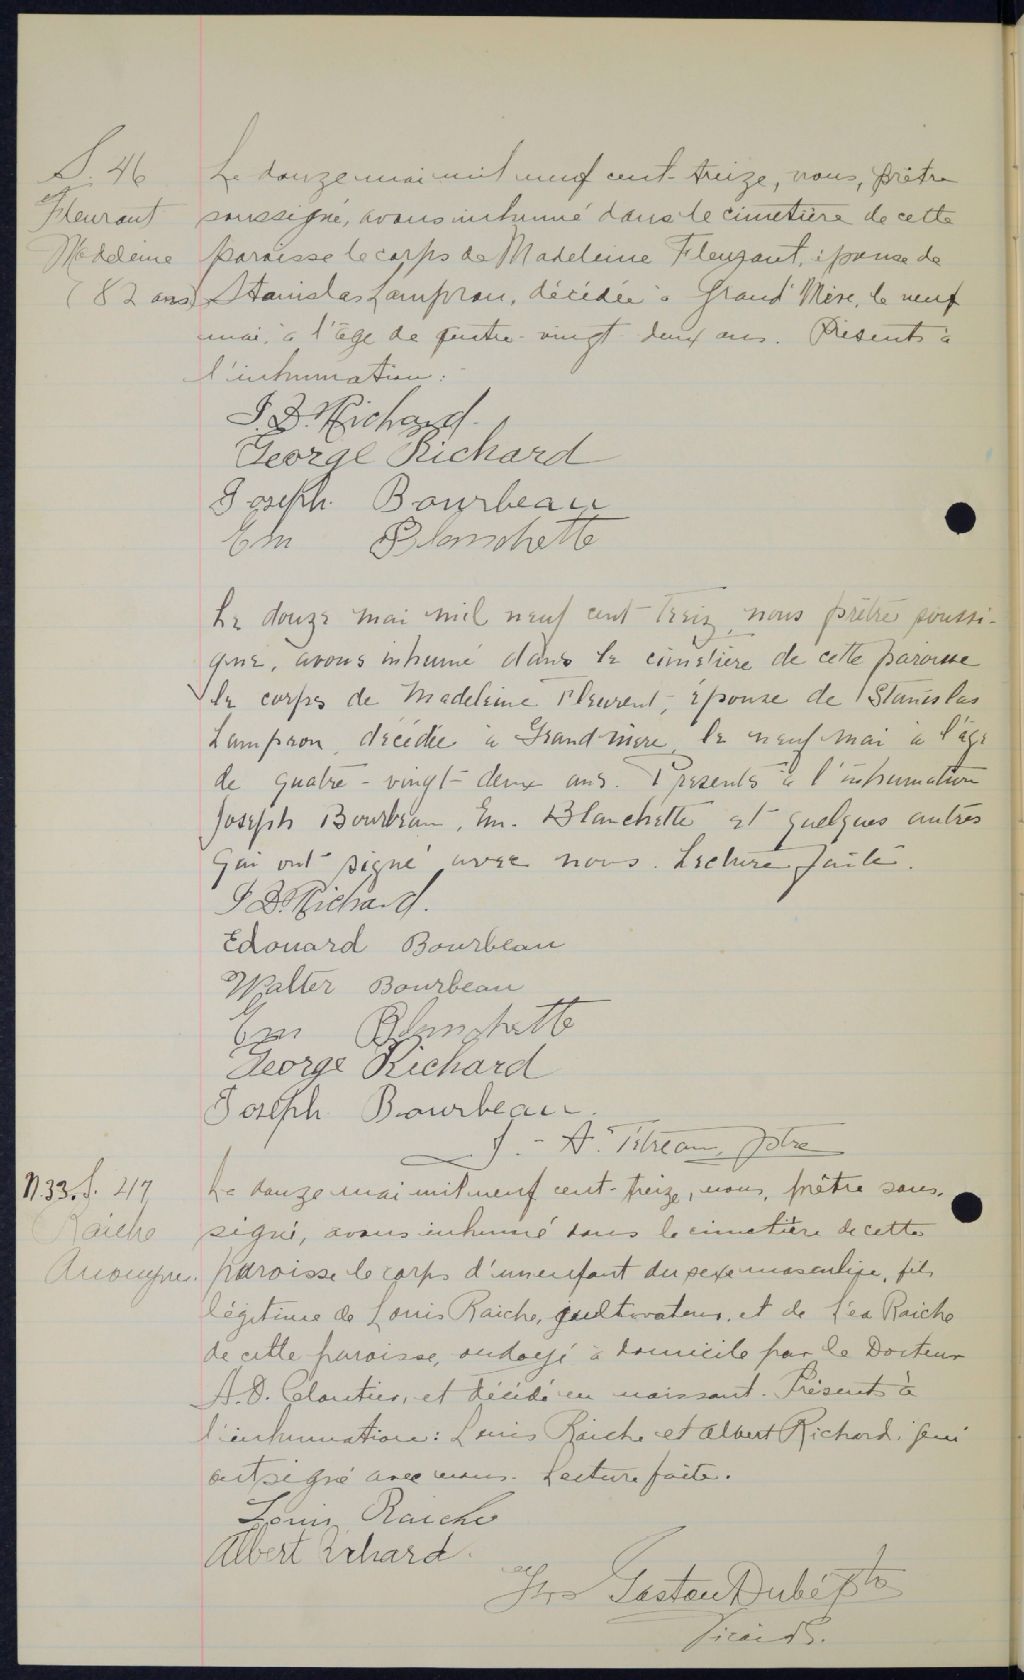 S. 46
Fleurant
Madeleine
(82 ans)
Le douze mai mil neuf cent-treize, nous, prêtre
soussigné, avons inhumé dans le cimetière de cette
paroisse le corps de Madeleine Fleurant, épouse de
Stanislas Lampron, décédée à Grand'Mère, le neuf
mai, à l'âge de quatre-vingt deux ans. Présents à
l'inhumation:
J.D. Richard.
George Richard
Joseph Bourbeau
Em Blanchette
Le douze mai mil neuf cent treiz, nous prêtre soussi-
gné, avons inhumé dans le cimetière de cette paroisse
le corps de Madeleine Fleurent, épouse de Stanislas
Lampron, décédée à Grand'mère, le neuf mai à l'âge
de quatre-vingt-deux ans. Présents à l'inhumation
Joseph Bourbeau, Em. Blanchette et quelques autres
qui ont signé avec nous. Lecture faite.
J.D. Richard.
Edouard Bourbeau
Walter Bourbeau
Em Blanchette
George Richard
Joseph Bourbeau.
J.-A. Tétreau, ptre
N33. S. 47
Raiche
Anonyme.
Le douze mai mil neuf cent-treize, nous, prêtre sous-
signé, avons inhumé dans le cimetière de cette
paroisse le corps d'un enfant du sexe masculin, fils
légitime de Louis Raiche, cultivateur, et de Léa Raiche
de cette paroisse, ondoyé à domicile par le Docteur
A.D. Cloutier, et décédé en naissant. Présents à
l'inhumation: Louis Raiche et Albert Richard, qui
ont signé avec nous. Lecture faite.
Louis Raiche
Albert Richard.
Gaston Dubé ptre